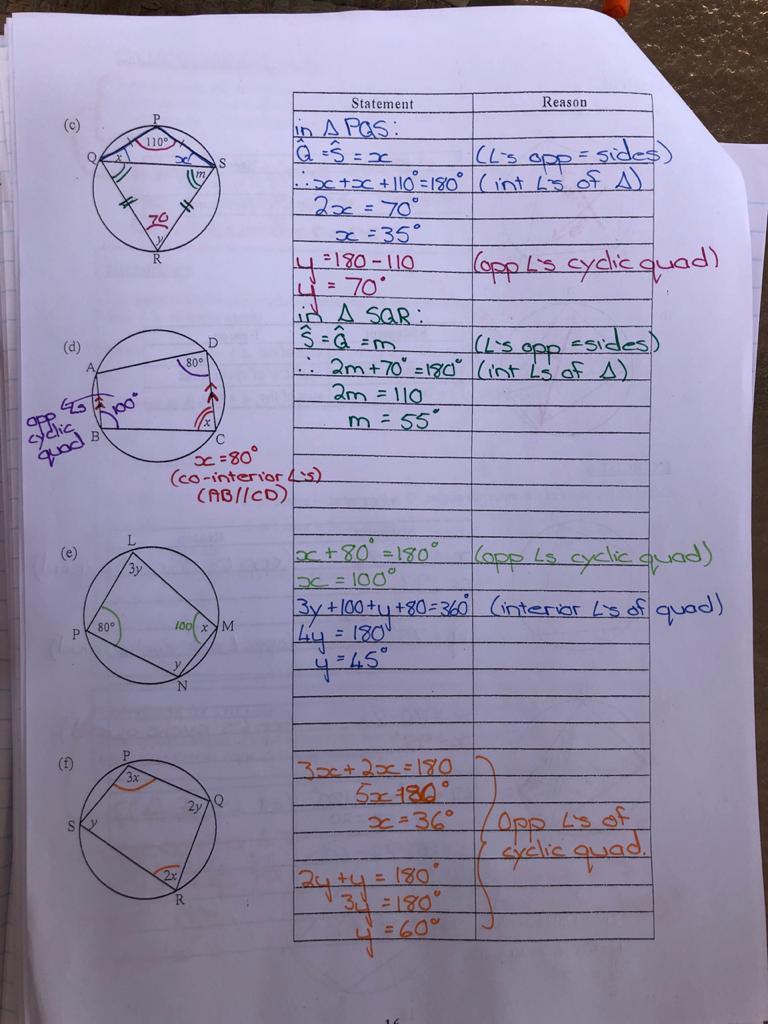 Statement Reason
(c)
P
110°
Q x x S
m
70
y
R
in Δ PQS:
Q̂ = Ŝ = x (L's opp = sides)
∴ x + x + 110° = 180° (int L's of Δ)
2x = 70°
x = 35°
y = 180 - 110 (opp L's cyclic quad)
y = 70°
in Δ SQR:
Ŝ = Q̂ = m (L's opp = sides)
∴ 2m + 70° = 180° (int Ls of Δ)
2m = 110
m = 55°
(d)
D
A 80°
opp Ls
cyclic
quad
100°
B x C
x = 80°
(co-interior L's)
(AB//CD)
(e)
L
3y
P 80° 100 x M
y
N
x + 80° = 180° (opp Ls cyclic quad)
x = 100°
3y + 100 + y + 80 = 360° (interior L's of quad)
4y = 180°
y = 45°
(f)
P
3x
2y Q
S y
2x
R
3x + 2x = 180
5x = 180°
x = 36°
Opp L's of
cyclic quad.
2y + y = 180°
3y = 180°
y = 60°
16